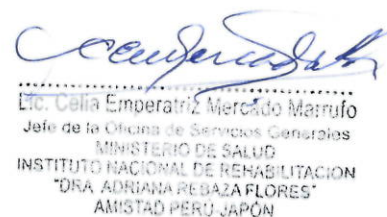 Lic. Celia Emperatriz Mercado Marrufo
Jefe de la Oficina de Servicios Generales
MINISTERIO DE SALUD
INSTITUTO NACIONAL DE REHABILITACION
"DRA. ADRIANA REBAZA FLORES"
AMISTAD PERÚ-JAPÓN